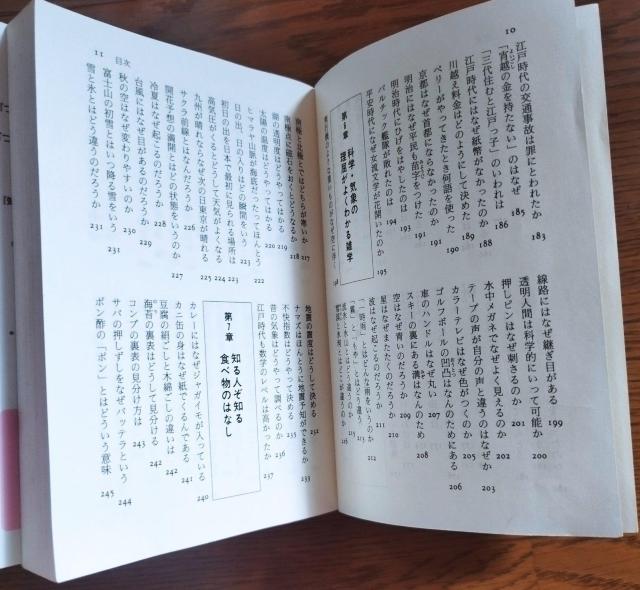 10
江戸時代の交通事故は罪にとわれたか 183
「宵越の金を持たない」のはなぜ 185
「三代住むと江戸っ子」のいわれは 186
江戸時代にはなぜ紙幣がなかったのか 188
川越え料金はどのようにして決めた 189
ペリーがやってきたとき何語を使った 190
京都はなぜ首都にならなかったのか 191
明治にはなぜ平民も苗字をつけた 191
明治時代にひげをはやしたのは 193
バルチック艦隊が敗れたのは 194
平安時代になぜ女流文学が花開いたのか 195
科学・気象の
理屈がよくわかる雑学
線路にはなぜ継ぎ目がある 199
透明人間は科学的にいって可能か 200
押しピンはなぜ刺さるのか 201
水中メガネでなぜよく見えるのか 202
テープの声が自分の声と違うのはなぜか 203
カラーテレビはなぜ色がつくのか 205
ゴルフボールの凹凸はなんのためにある 206
車のハンドルはなぜ丸い 207
スキーの裏にある溝はなんのため 208
空はなぜ青いのだろうか 209
星はなぜまたたくのだろうか 210
波はなぜ起こるのだろうか 212
11 目次
南極と北極とではどちらが寒いか 217
南極点に磁石をおくとどうなるか 218
湖の透明度はどうやってはかる 219
太陽の温度はどうやってはかる 220
ヒマラヤ山脈が海底だったってほんとう 222
日の出、日の入りはどの瞬間をいう 223
初日の出を日本で最初に見られる場所は 223
高気圧がくるとどうして天気がよくなる 224
九州が晴れならなぜ次の日東京が晴れる 225
サクラ前線はなんの役に立つ
開花予想の満開とはどの状態をいうのか 227
冷夏はなぜ起こるのだろうか 228
台風にはなぜ目があるのだろうか 229
秋の空はなぜ変わりやすいのか 230
富士山の初雪とはいつ降る雪をいう 231
雪と氷とはどう違うのだろうか 231
地震の震度はどうして決める 232
ナマズはほんとうに地震予知ができるか 233
不快指数はどうやって決める 235
昔の気象はどうやって調べるのか 236
江戸時代も数学のレベルは高かったか 237
第7章 知る人ぞ知る
食べ物のはなし
カレーにはなぜジャガイモが入っている 240
カニ缶の身はなぜ紙でくるんである 241
豆腐の絹ごしと木綿ごしの違いは 242
海苔の裏表はどうして見分ける 242
コンブの裏表の見分け方は 243
サバの押しずしをなぜバッテラという 244
ポン酢の「ポン」とはどういう意味 245